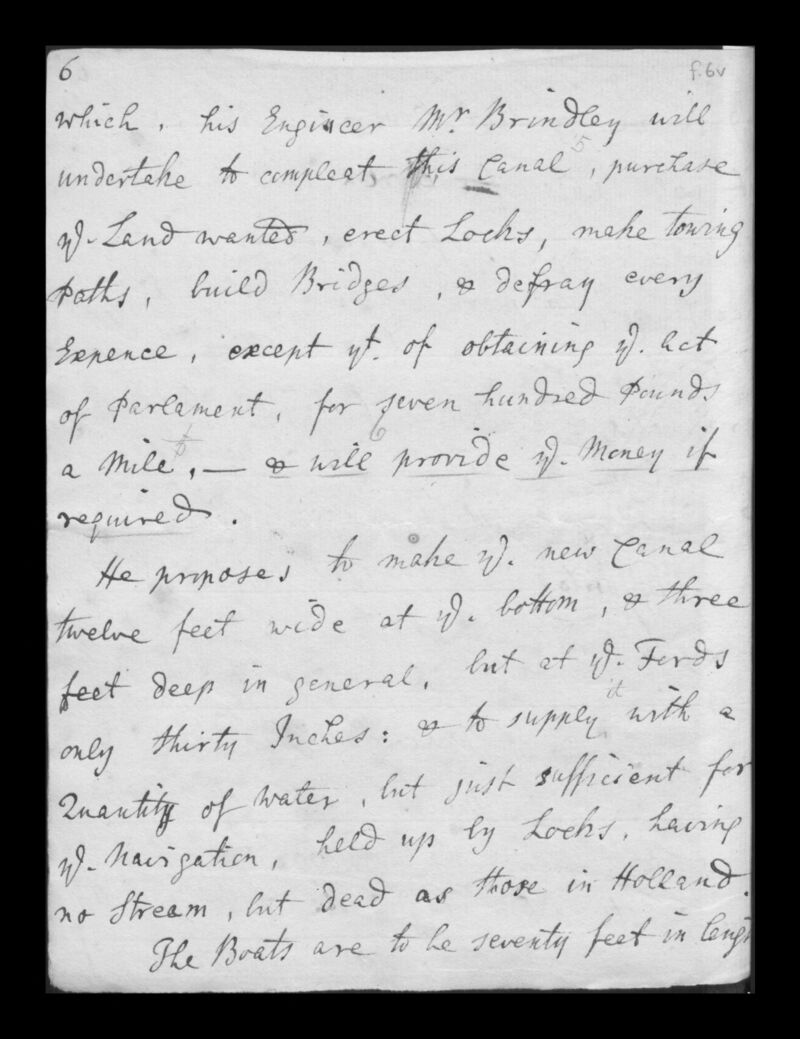 6
f.6v
which, his Engineer Mr. Brindley will
undertake to compleat this Canal, purchase
ye. Land wanted, erect Locks, make towing
Paths, build Bridges, & defray every
Expence, except yt. of obtaining ye. Act
of Parlament, for seven hundred Pounds
a Mile, — & will provide ye. Money if
required.
He proposes to make ye. new Canal
twelve feet wide at ye. bottom, & three
feet deep in general, but at ye. Fords
it
only thirty Inches: & to supply with a
Quantity of Water, but just sufficient for
ye. Navigation, held up by Locks, having
no Stream, but dead as those in Holland.
The Boats are to be seventy feet in leng